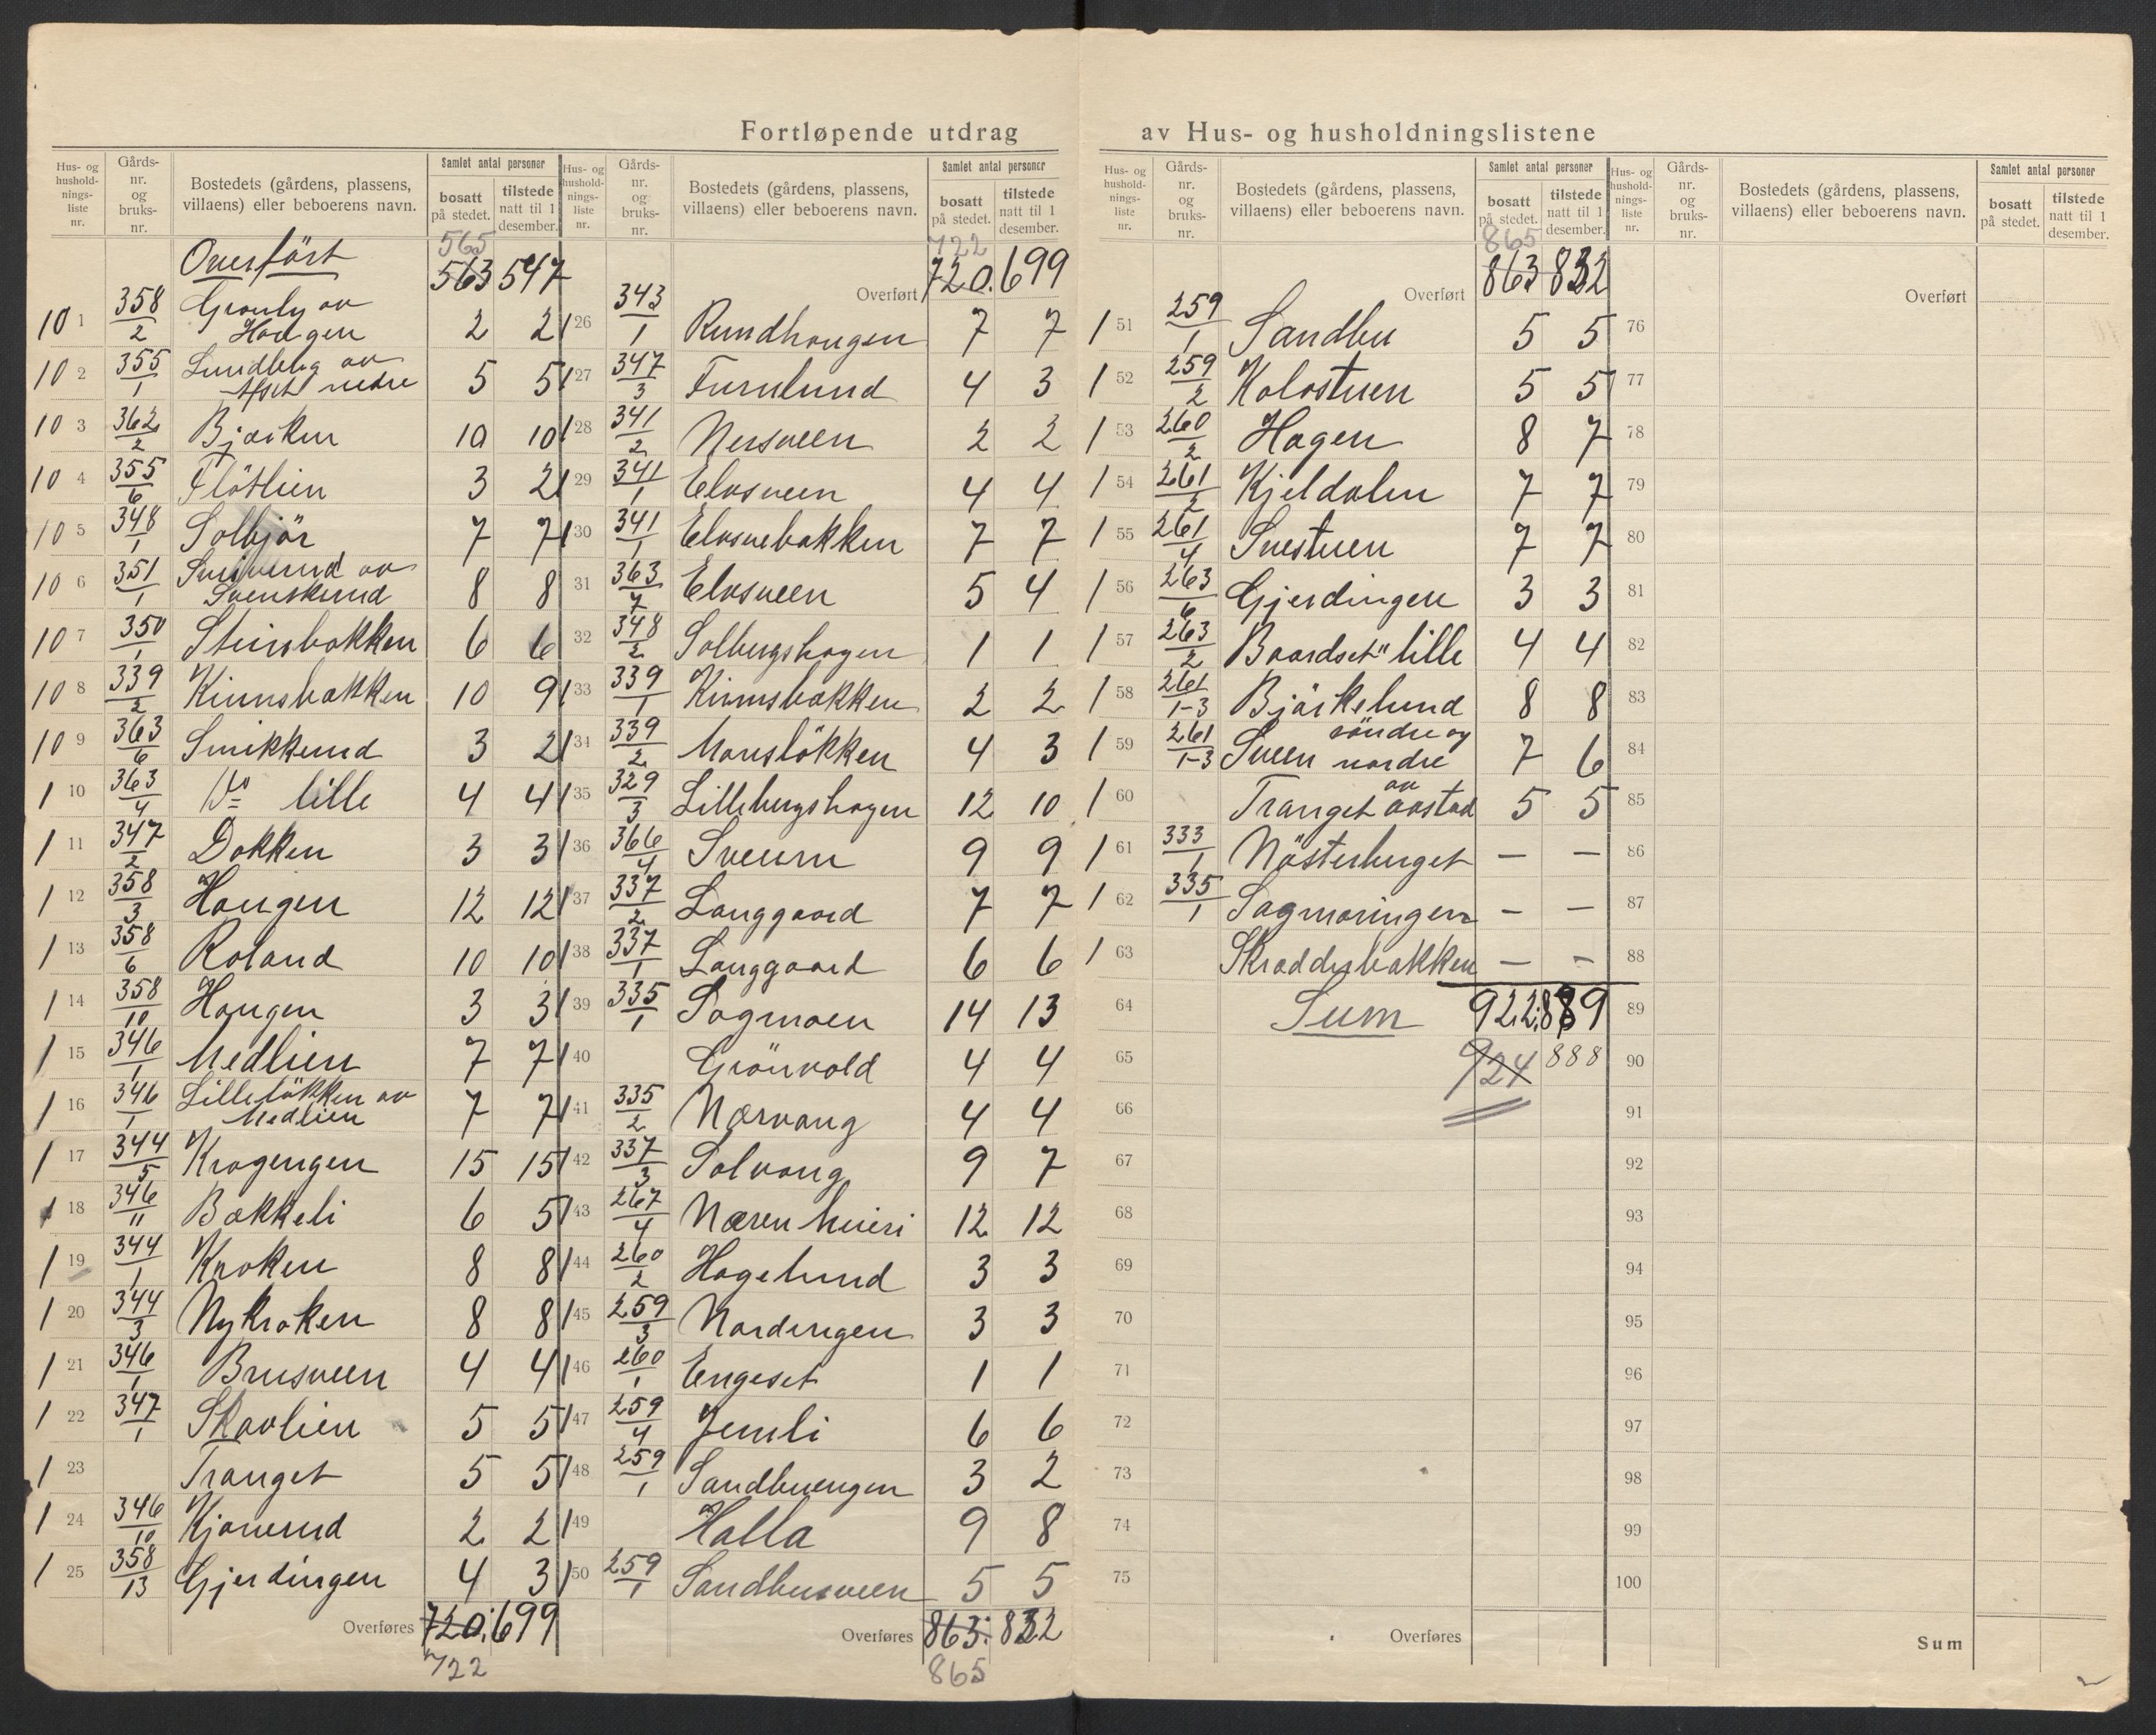 Fortløpende utdrag av Hus- og husholdningslistene
Hus- og hushold- nings- liste nr. | Gårds- nr. og bruks- nr. | Bostedets (gårdens, plassens, villaens) eller beboerens navn. | Samlet antal personer | bosatt på stedet. | tilstede natt til 1 desember.
565
Overført 563 547
10 1 358/2 Granly av Haugen 2 2
10 2 355/1 Lundberg av Afset nedre 5 5
10 3 362/2 Bjørken 10 10
10 4 355/6 Flötlien 3 2
10 5 348/1 Solbjör 7 7
10 6 351/1 av Svenskerud 8 8
10 7 350/1 Steinsbakken 6 6
10 8 339/2 Kinnsbakken 10 9
10 9 363/6 Smikkerud 3 2
1 10 363/4 Do lille 4 4
1 11 347/2 Dokken 3 3
1 12 358/3 Haugen 12 12
1 13 358/6 Roland 10 10
1 14 358/10 Haugen 3 3
1 15 346/1 Medlien 7 7
1 16 346/1 Lillelökken av Medlien 7 7
1 17 344/5 Krogengen 15 15
1 18 346/11 Bakkeli 6 5
1 19 344/1 Kroken 8 8
1 20 344/3 Nykroken 8 8
1 21 346/1 Brusveen 4 4
1 22 347/1 Skavlien 5 5
1 23 Tranget 5 5
1 24 346/10 Kjonerud 2 2
1 25 358/13 Gjerdingen 4 3
Overføres 720 699
722
Hus- og hushold- nings- liste nr. | Gårds- nr. og bruks- nr. | Bostedets (gårdens, plassens, villaens) eller beboerens navn. | Samlet antal personer | bosatt på stedet. | tilstede natt til 1 desember.
722
Overført 720. 699
1 26 343/1 Rundhaugen 7 7
1 27 347/3 Furulund 4 3
1 28 341/2 Nersveen 2 2
1 29 341/1 Elvsveen 4 4
1 30 341/1 Elvsvebakken 7 7
31 363/7 Elvsveen 5 4
32 348/2 Solbergshagen 1 1
1 33 339/1 Kinnsbakken 2 2
1 34 339/2 Monslökken 4 3
1 35 329/3 Lillebergshagen 12 10
1 36 366/4 Sveum 9 9
1 37 337/2 Langgaard 7 7
1 38 337/1 Langgaard 6 6
1 39 335/1 Sagmoen 14 13
1 40 Grönvold 4 4
1 41 335/2 Nærvang 4 4
1 42 337/3 Solvang 9 7
1 43 267/4 Næren Meieri 12 12
1 44 260/2 Hagelund 3 3
1 45 259/3 Nordengen 3 3
1 46 260/1 Engeset 1 1
1 47 259/4 Jemli 6 6
1 48 259/1 Sandbuengen 3 2
1 49 Halla 9 8
1 50 259/1 Sandbusveen 5 5
Overføres 863: 832
865
Hus- og hushold- nings- liste nr. | Gårds- nr. og bruks- nr. | Bostedets (gårdens, plassens, villaens) eller beboerens navn. | Samlet antal personer | bosatt på stedet. | tilstede natt til 1 desember.
865
Overført 863 832
1 51 259/1 Sandbu 5 5
1 52 259/2 Kolostuen 5 5
1 53 260/2 Hagen 8 7
1 54 261/2 Kjeldalen 7 7
1 55 261/4 Svestuen 7 7
1 56 263/6 Gjerdingen 3 3
1 57 263/2 Baardset" lille 4 4
1 58 261/1-3 Bjørkelund 8 8
1 59 261/1-3 Sveen søndre og nordre 7 6
1 60 Tranget av aastad 5 5
1 61 333/1 Nösterberget — —
1 62 335/1 Sagmoringen — —
1 63 Skradderbakken — —
64 Sum 922: 889
65 924 888
66
67
68
69
70
71
72
73
74
75
Overføres
Hus- og hushold- nings- liste nr. | Gårds- nr. og bruks- nr. | Bostedets (gårdens, plassens, villaens) eller beboerens navn. | Samlet antal personer | bosatt på stedet. | tilstede natt til 1 desember.
Overført
76
77
78
79
80
81
82
83
84
85
86
87
88
89
90
91
92
93
94
95
96
97
98
99
100
Sum